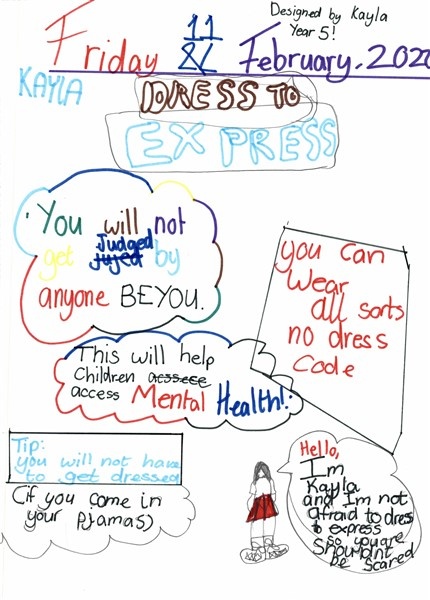 Designed by Kayla
Year 5!
Friday 11 February. 202
KAYLA
DRESS TO
EXPRESS
You will not
get Judged by
anyone BE YOU.
you can
Wear
all sorts
no dress
code
This will help
Children
access Mental Health!
Tip:
you will not have
to get dressed
(if you come in
your Pjamas)
Hello,
Im
Kayla
and Im not
afraid to dress
to express
so you are
Shouldnt
be scared